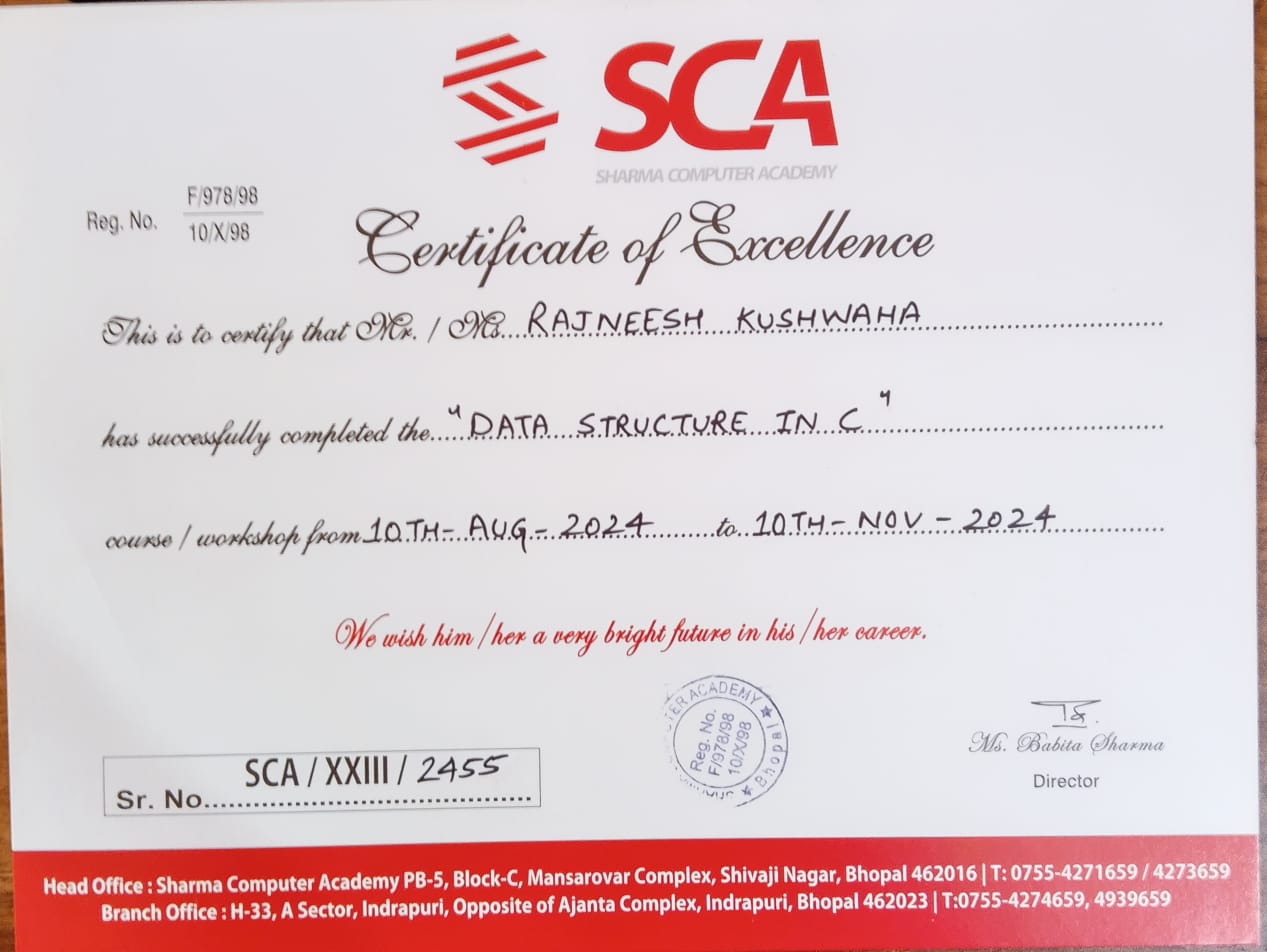 SCA
SHARMA COMPUTER ACADEMY
Reg. No. F/978/98
10/X/98
Certificate of Excellence
This is to certify that Mr. / Ms. RAJNEESH KUSHWAHA
has successfully completed the "DATA STRUCTURE IN C"
course / workshop from 10TH-AUG-2024 to 10TH-NOV-2024
We wish him / her a very bright future in his / her career.
TER ACADEMY
Reg. No.
F/978/98
10/X/98
Bhopal
Ms. Babita Sharma
Director
SCA / XXIII / 2455
Sr. No.
Head Office : Sharma Computer Academy PB-5, Block-C, Mansarovar Complex, Shivaji Nagar, Bhopal 462016 | T: 0755-4271659 / 4273659
Branch Office : H-33, A Sector, Indrapuri, Opposite of Ajanta Complex, Indrapuri, Bhopal 462023 | T:0755-4274659, 4939659